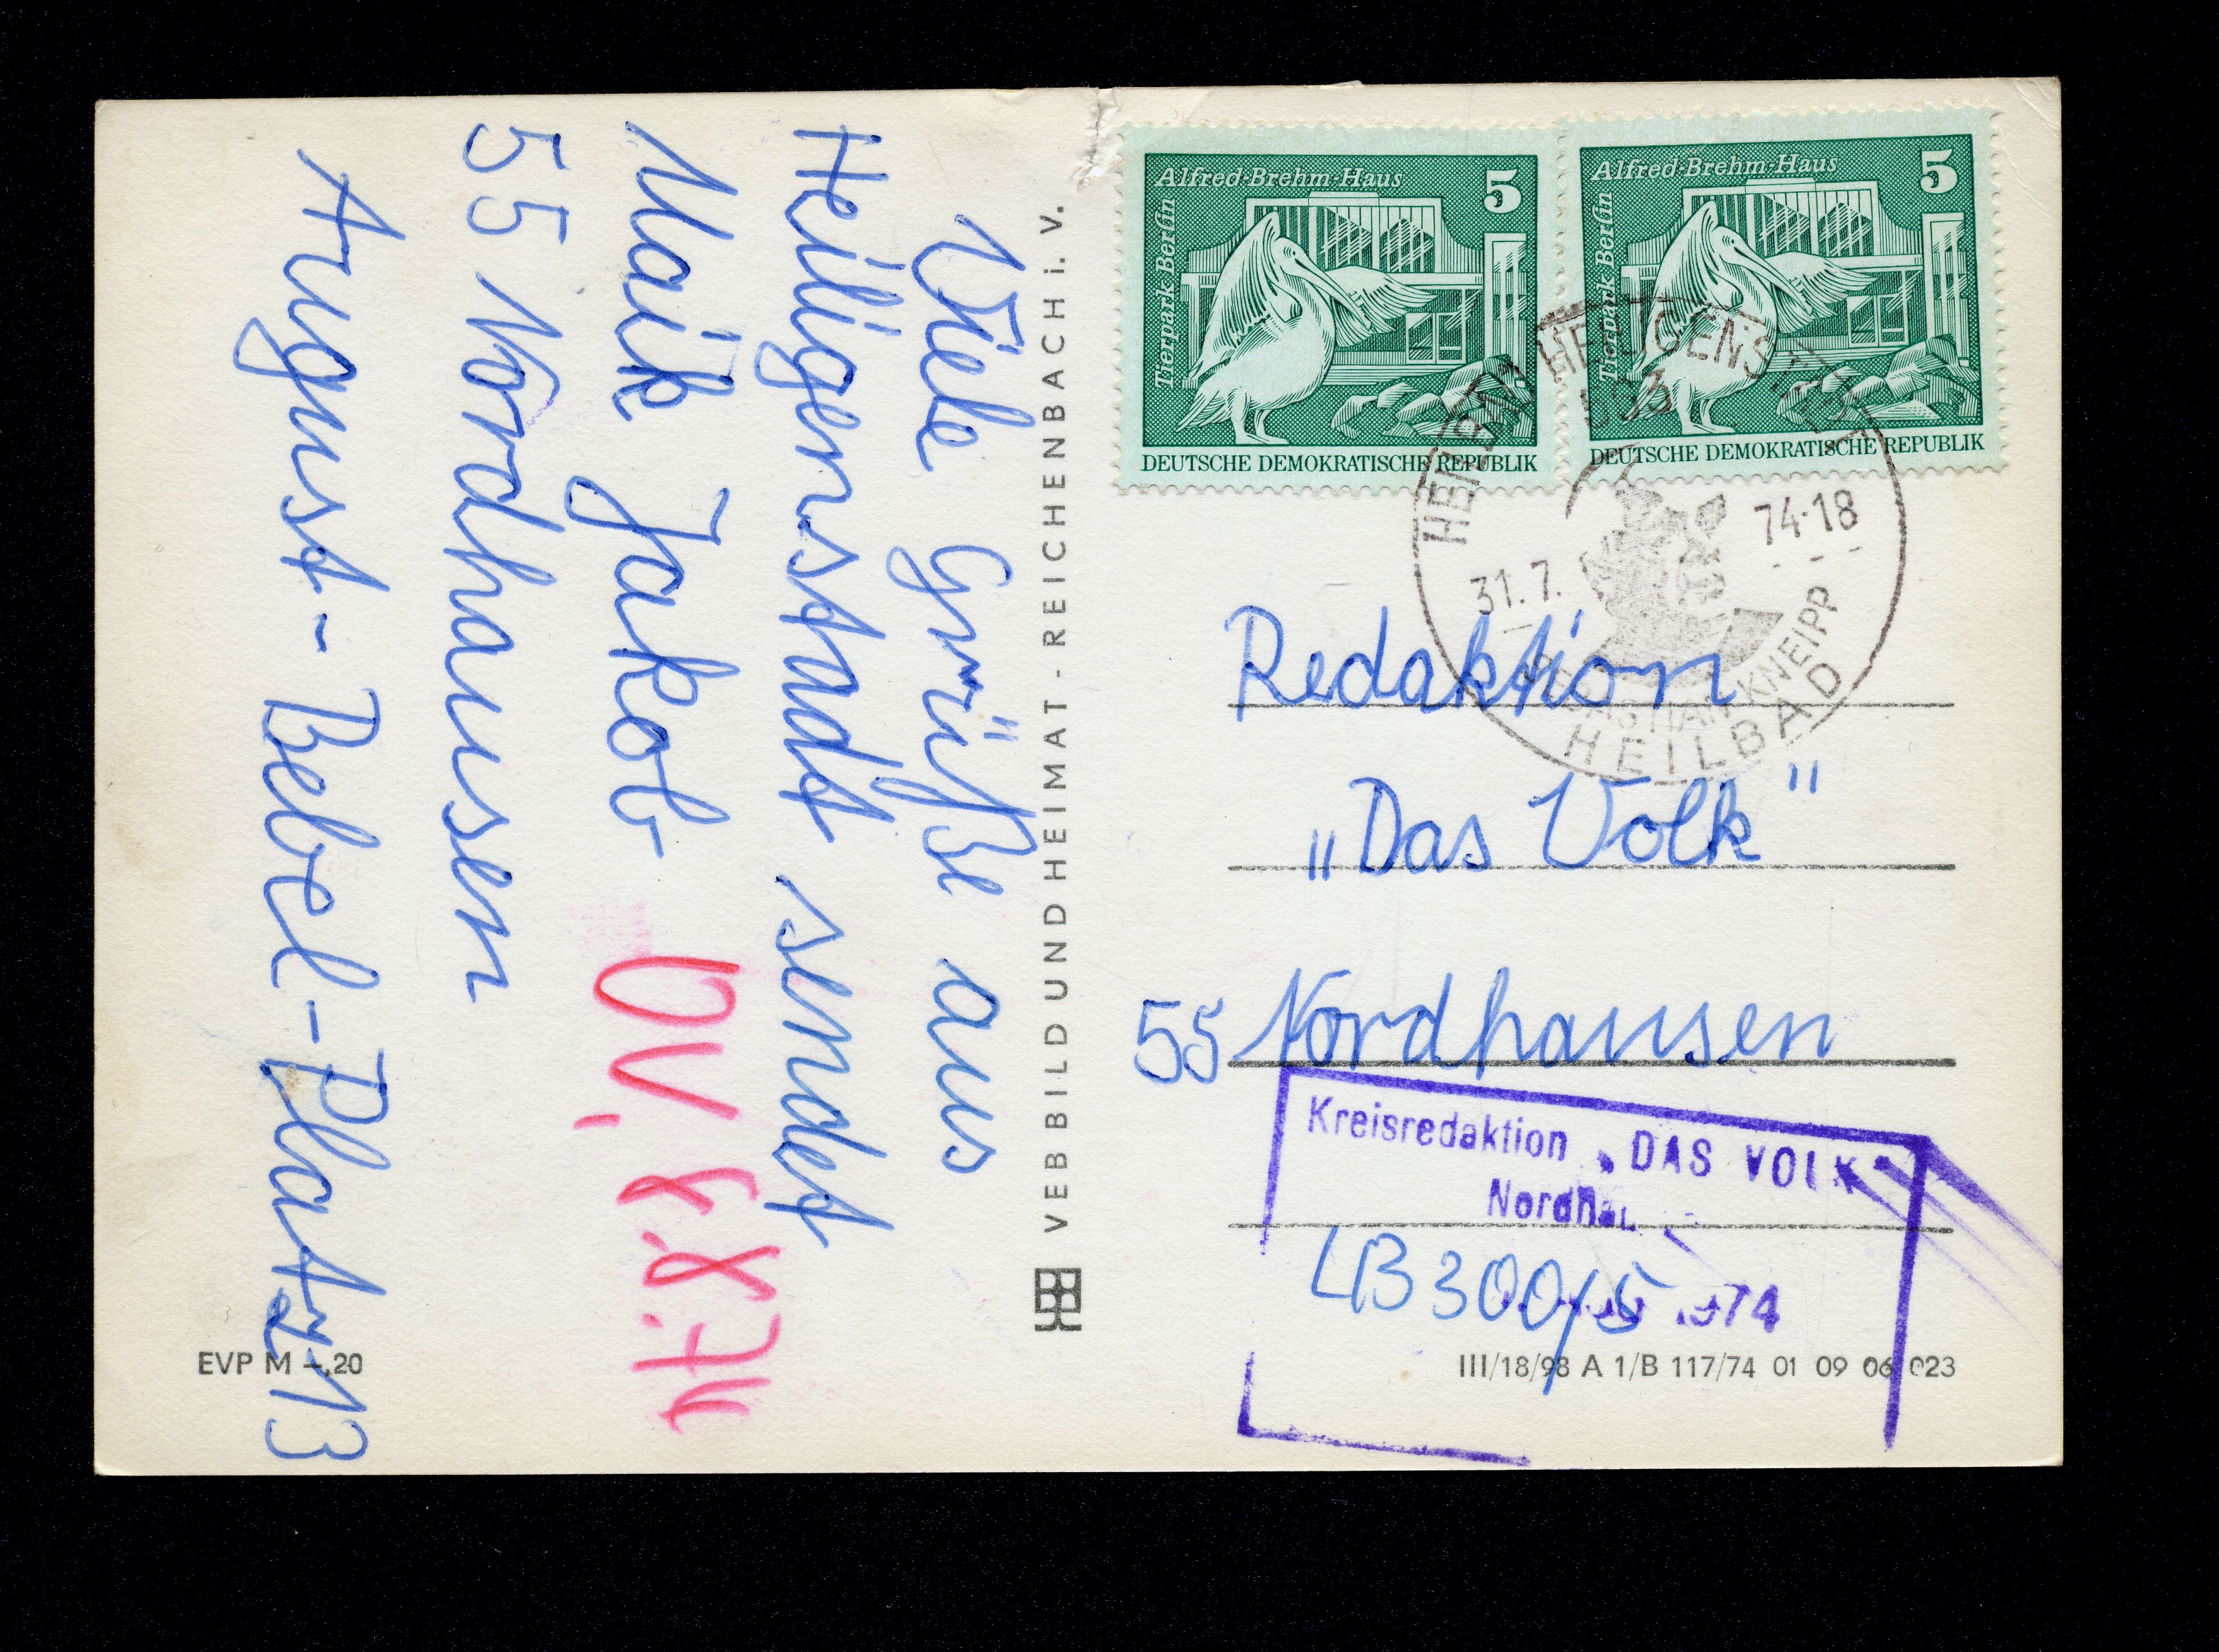 Viele Grüße aus
Heiligenstadt sendet
Maik Jakob
55 Nordhausen
August-Bebel-Platz 13
EVP M –,20
VEB BILD UND HEIMAT · REICHENBACH i. V.
Alfred-Brehm-Haus 5
Tierpark Berlin
DEUTSCHE DEMOKRATISCHE REPUBLIK
Alfred-Brehm-Haus 5
Tierpark Berlin
DEUTSCHE DEMOKRATISCHE REPUBLIK
HEILBAD HEILIGENSTADT
31.7. 74-18
SEBASTIAN KNEIPP
HEILBAD
Redaktion
„Das Volk"
55 Nordhausen
Kreisredaktion „DAS VOLK"
1974
LB 300/5
III/18/98 A 1/B 117/74 01 09 06 023